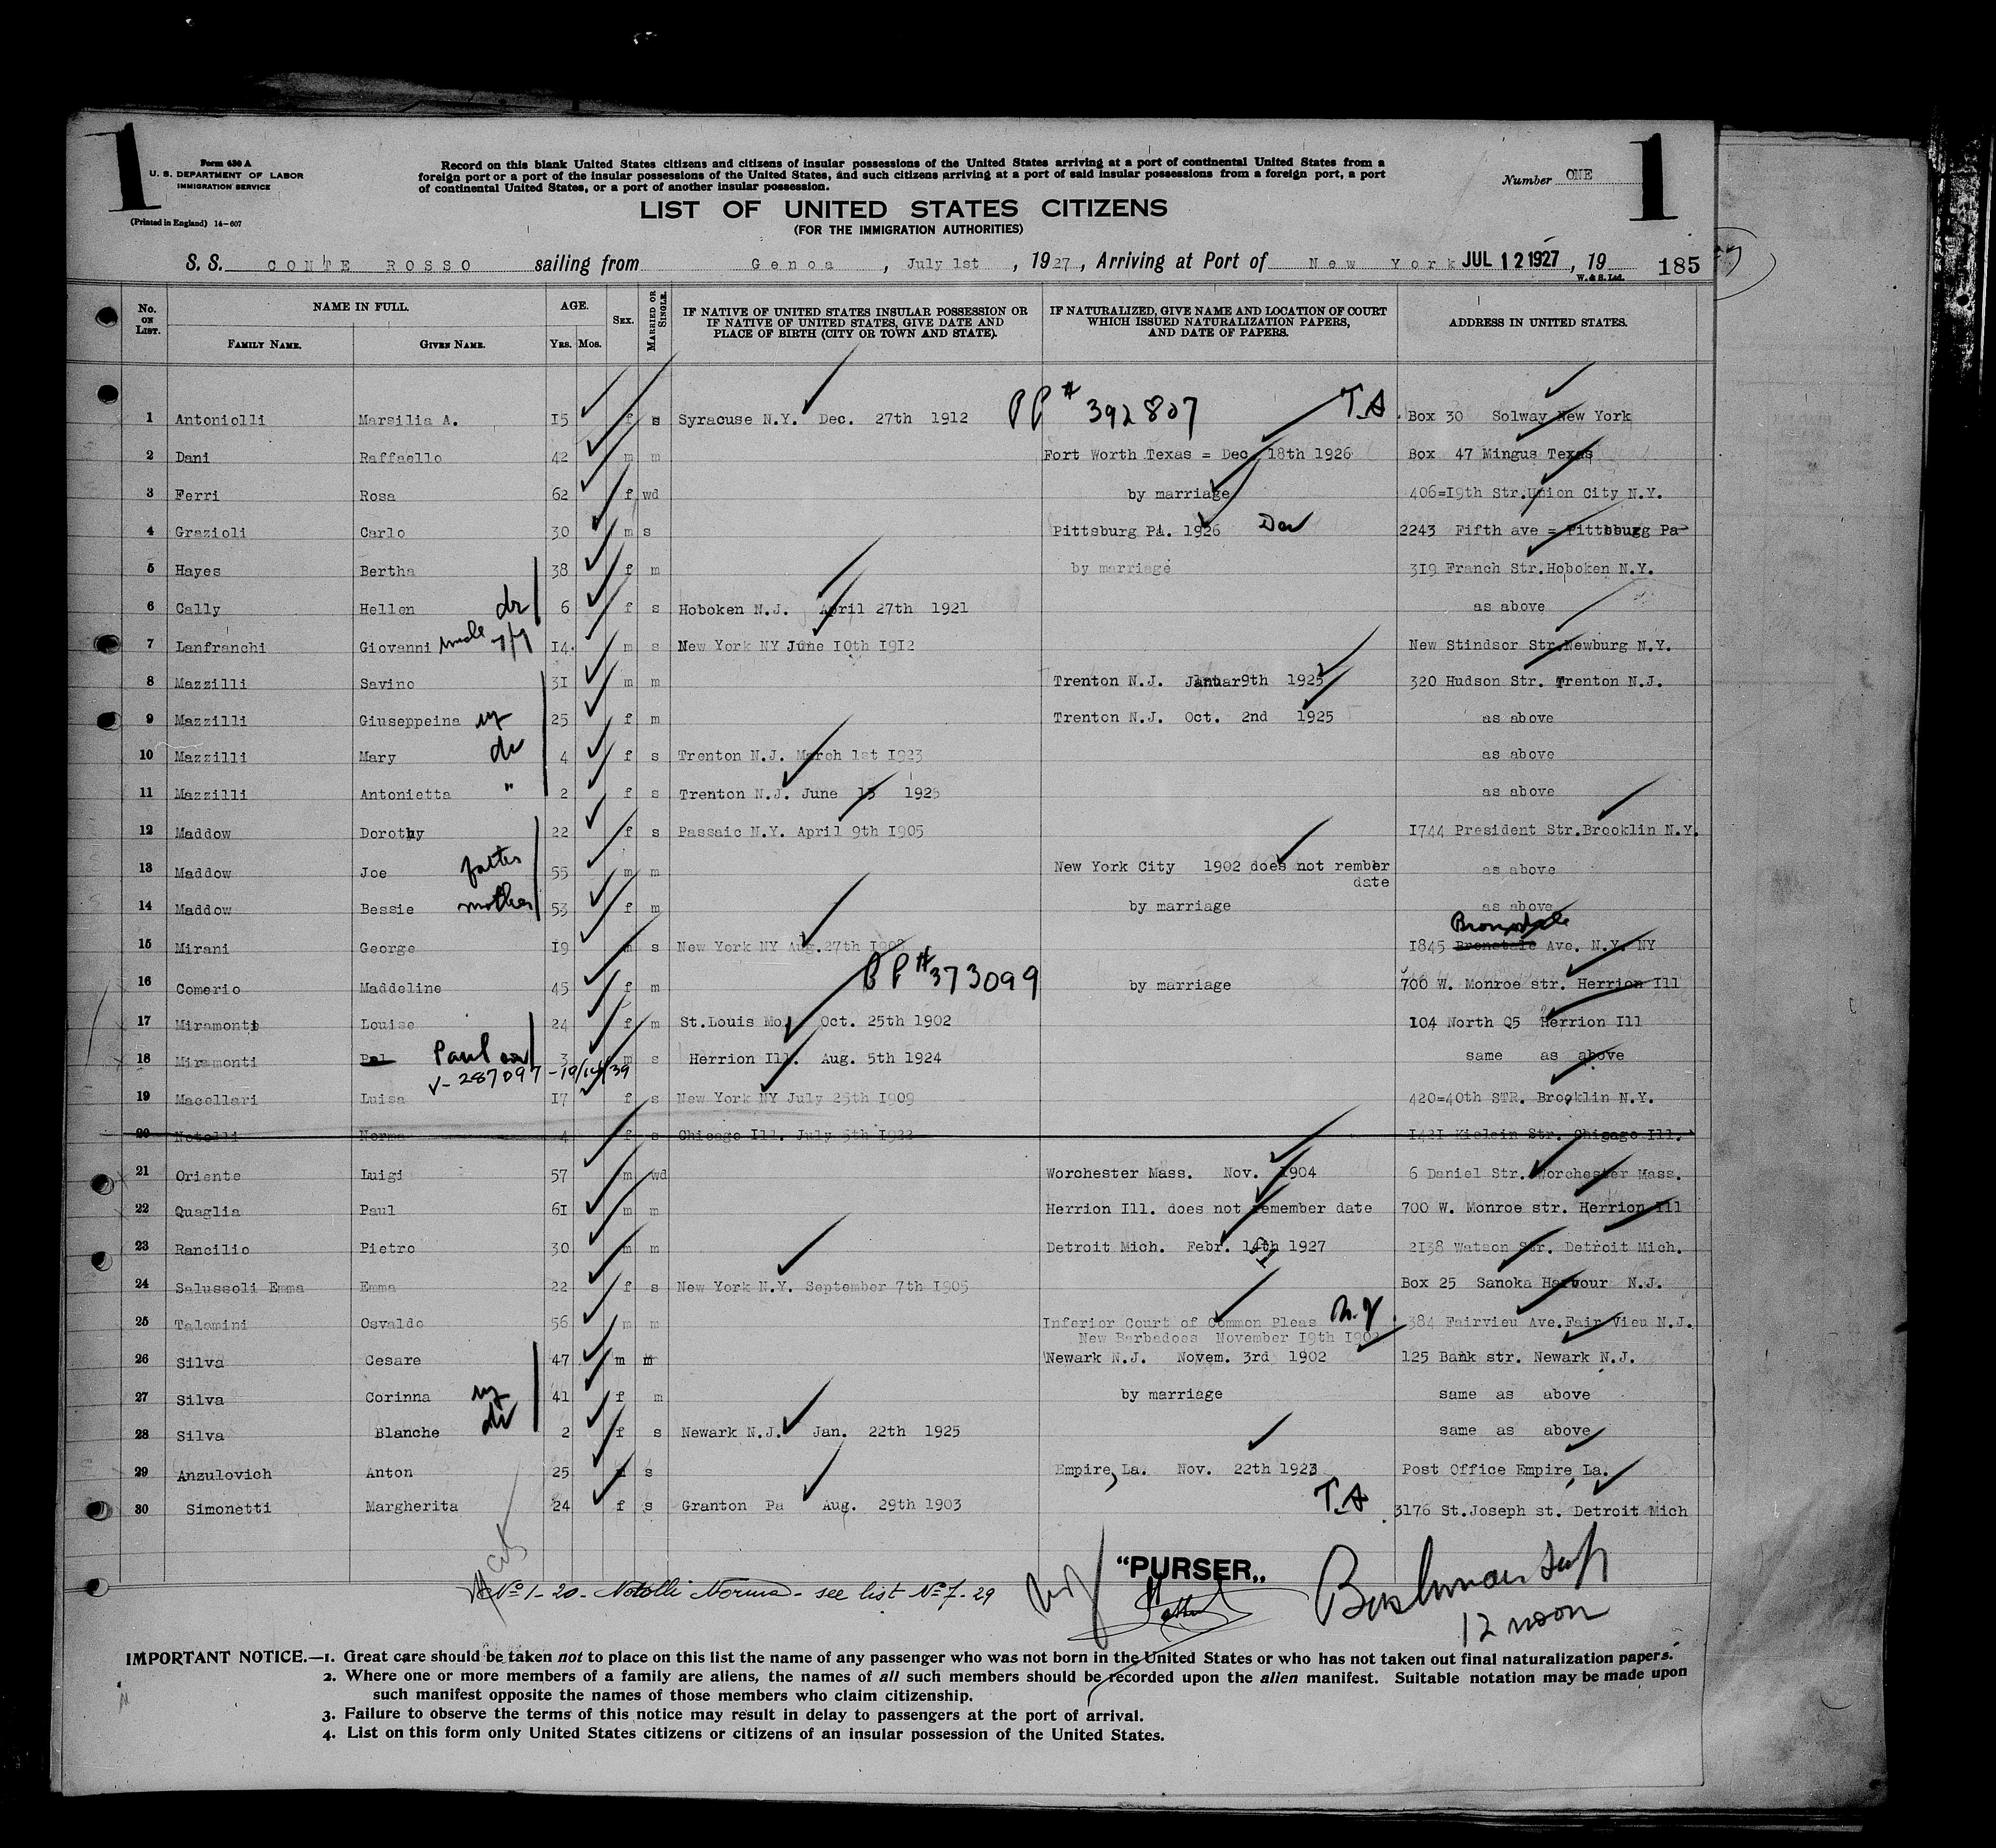 1
1
Form 630 A
U. S. DEPARTMENT OF LABOR
IMMIGRATION SERVICE
(Printed in England) 14-607
Record on this blank United States citizens and citizens of insular possessions of the United States arriving at a port of continental United States from a
foreign port or a port of the insular possessions of the United States, and such citizens arriving at a port of said insular possessions from a foreign port, a port
of continental United States, or a port of another insular possession.
Number ONE
LIST OF UNITED STATES CITIZENS
(FOR THE IMMIGRATION AUTHORITIES)
S. S. CONTE ROSSO sailing from Genoa, July 1st, 1927, Arriving at Port of New York JUL 12 1927, 19
W. & S. Ltd.
185
No. ON LIST. NAME IN FULL. FAMILY NAME. GIVEN NAME. AGE. YRS. MOS. SEX. MARRIED OR SINGLE. IF NATIVE OF UNITED STATES INSULAR POSSESSION OR IF NATIVE OF UNITED STATES, GIVE DATE AND PLACE OF BIRTH (CITY OR TOWN AND STATE). IF NATURALIZED, GIVE NAME AND LOCATION OF COURT WHICH ISSUED NATURALIZATION PAPERS, AND DATE OF PAPERS. ADDRESS IN UNITED STATES.
1 Antoniolli Marsilia A. 15 f s Syracuse N.Y. Dec. 27th 1912 PP # 392807 T.A. Box 30 Solway New York
2 Dani Raffaello 42 m m Fort Worth Texas = Dec. 18th 1926 Box 47 Mingus Texas
3 Ferri Rosa 62 f wd by marriage 406=19th Str.Union City N.Y.
4 Grazioli Carlo 30 m s Pittsburg Pa. 1926 2243 Fifth ave = Pittburg Pa
5 Hayes Bertha 38 f m by marriage 319 Franch Str.Hoboken N.Y.
6 Cally Hellen dr 6 f s Hoboken N.J. April 27th 1921 as above
7 Lanfranchi Giovanni 14 m s New York NY June 10th 1912 New Stindsor Str.Newburg N.Y.
8 Mazzilli Savino 31 m m Trenton N.J. Januar 9th 1925 320 Hudson Str. Trenton N.J.
9 Mazzilli Giuseppeina 25 f m Trenton N.J. Oct. 2nd 1925 as above
10 Mazzilli Mary dr 4 f s Trenton N.J. March 1st 1923 as above
11 Mazzilli Antonietta " 2 f s Trenton N.J. June 13 1925 as above
12 Maddow Dorothy 22 f s Passaic N.Y. April 9th 1905 1744 President Str.Brooklin N.Y.
13 Maddow Joe father 55 m m New York City 1902 does not rember date as above
14 Maddow Bessie mother 53 f m by marriage as above
15 Mirani George 19 m s New York NY Aug.27th 1845 Bronxdale Ave. N.Y. NY
16 Comerio Maddeline 45 f m PP #373099 by marriage 700 W. Monroe str. Herrion Ill
17 Miramonti Louise 24 f m St.Louis Mo. Oct. 25th 1902 104 North Q5 Herrion Ill
18 Miramonti Pal Paul son 3 m s Herrion Ill. Aug. 5th 1924 same as above
V-287097-10/14/39
19 Macellari Luisa 17 f s New York NY July 25th 1909 420=40th STR. Brooklin N.Y.
20 Notolli Norma 4 f s Chicago Ill. July 5th 1922 1421 Str. Chigago Ill.
21 Oriente Luigi 57 m wd Worchester Mass. Nov. 1904 6 Daniel Str. Worchester Mass.
22 Quaglia Paul 61 m m Herrion Ill. does not remember date 700 W. Monroe str. Herrion Ill
23 Rancilio Pietro 30 m m Detroit Mich. Febr. 14th 1927 2138 Watson Str. Detroit Mich.
24 Salussoli Emma Emma 22 f s New York N.Y. September 7th 1905 Box 25 Sanoka Harbour N.J.
25 Talamini Osvaldo 56 m m Inferior Court of Common Pleas N.J. 384 Fairvieu Ave.Fair Vieu N.J.
New Barbadoes November 19th 1902
26 Silva Cesare 47 m m Newark N.J. Novem. 3rd 1902 125 Bank str. Newark N.J.
27 Silva Corinna 41 f m by marriage same as above
28 Silva Blanche dr 2 f s Newark N.J. Jan. 22th 1925 same as above
29 Anzulovich Anton 25 s Empire, La. Nov. 22th 1923 Post Office Empire, La.
30 Simonetti Margherita 24 f s Granton Pa Aug. 29th 1903 T.A 3176 St.Joseph st. Detroit Mich
No 1-20- Notolli Norma - see list No 7-29
"PURSER„
12 noon
IMPORTANT NOTICE.—1. Great care should be taken not to place on this list the name of any passenger who was not born in the United States or who has not taken out final naturalization papers.
2. Where one or more members of a family are aliens, the names of all such members should be recorded upon the alien manifest. Suitable notation may be made upon
such manifest opposite the names of those members who claim citizenship.
3. Failure to observe the terms of this notice may result in delay to passengers at the port of arrival.
4. List on this form only United States citizens or citizens of an insular possession of the United States.